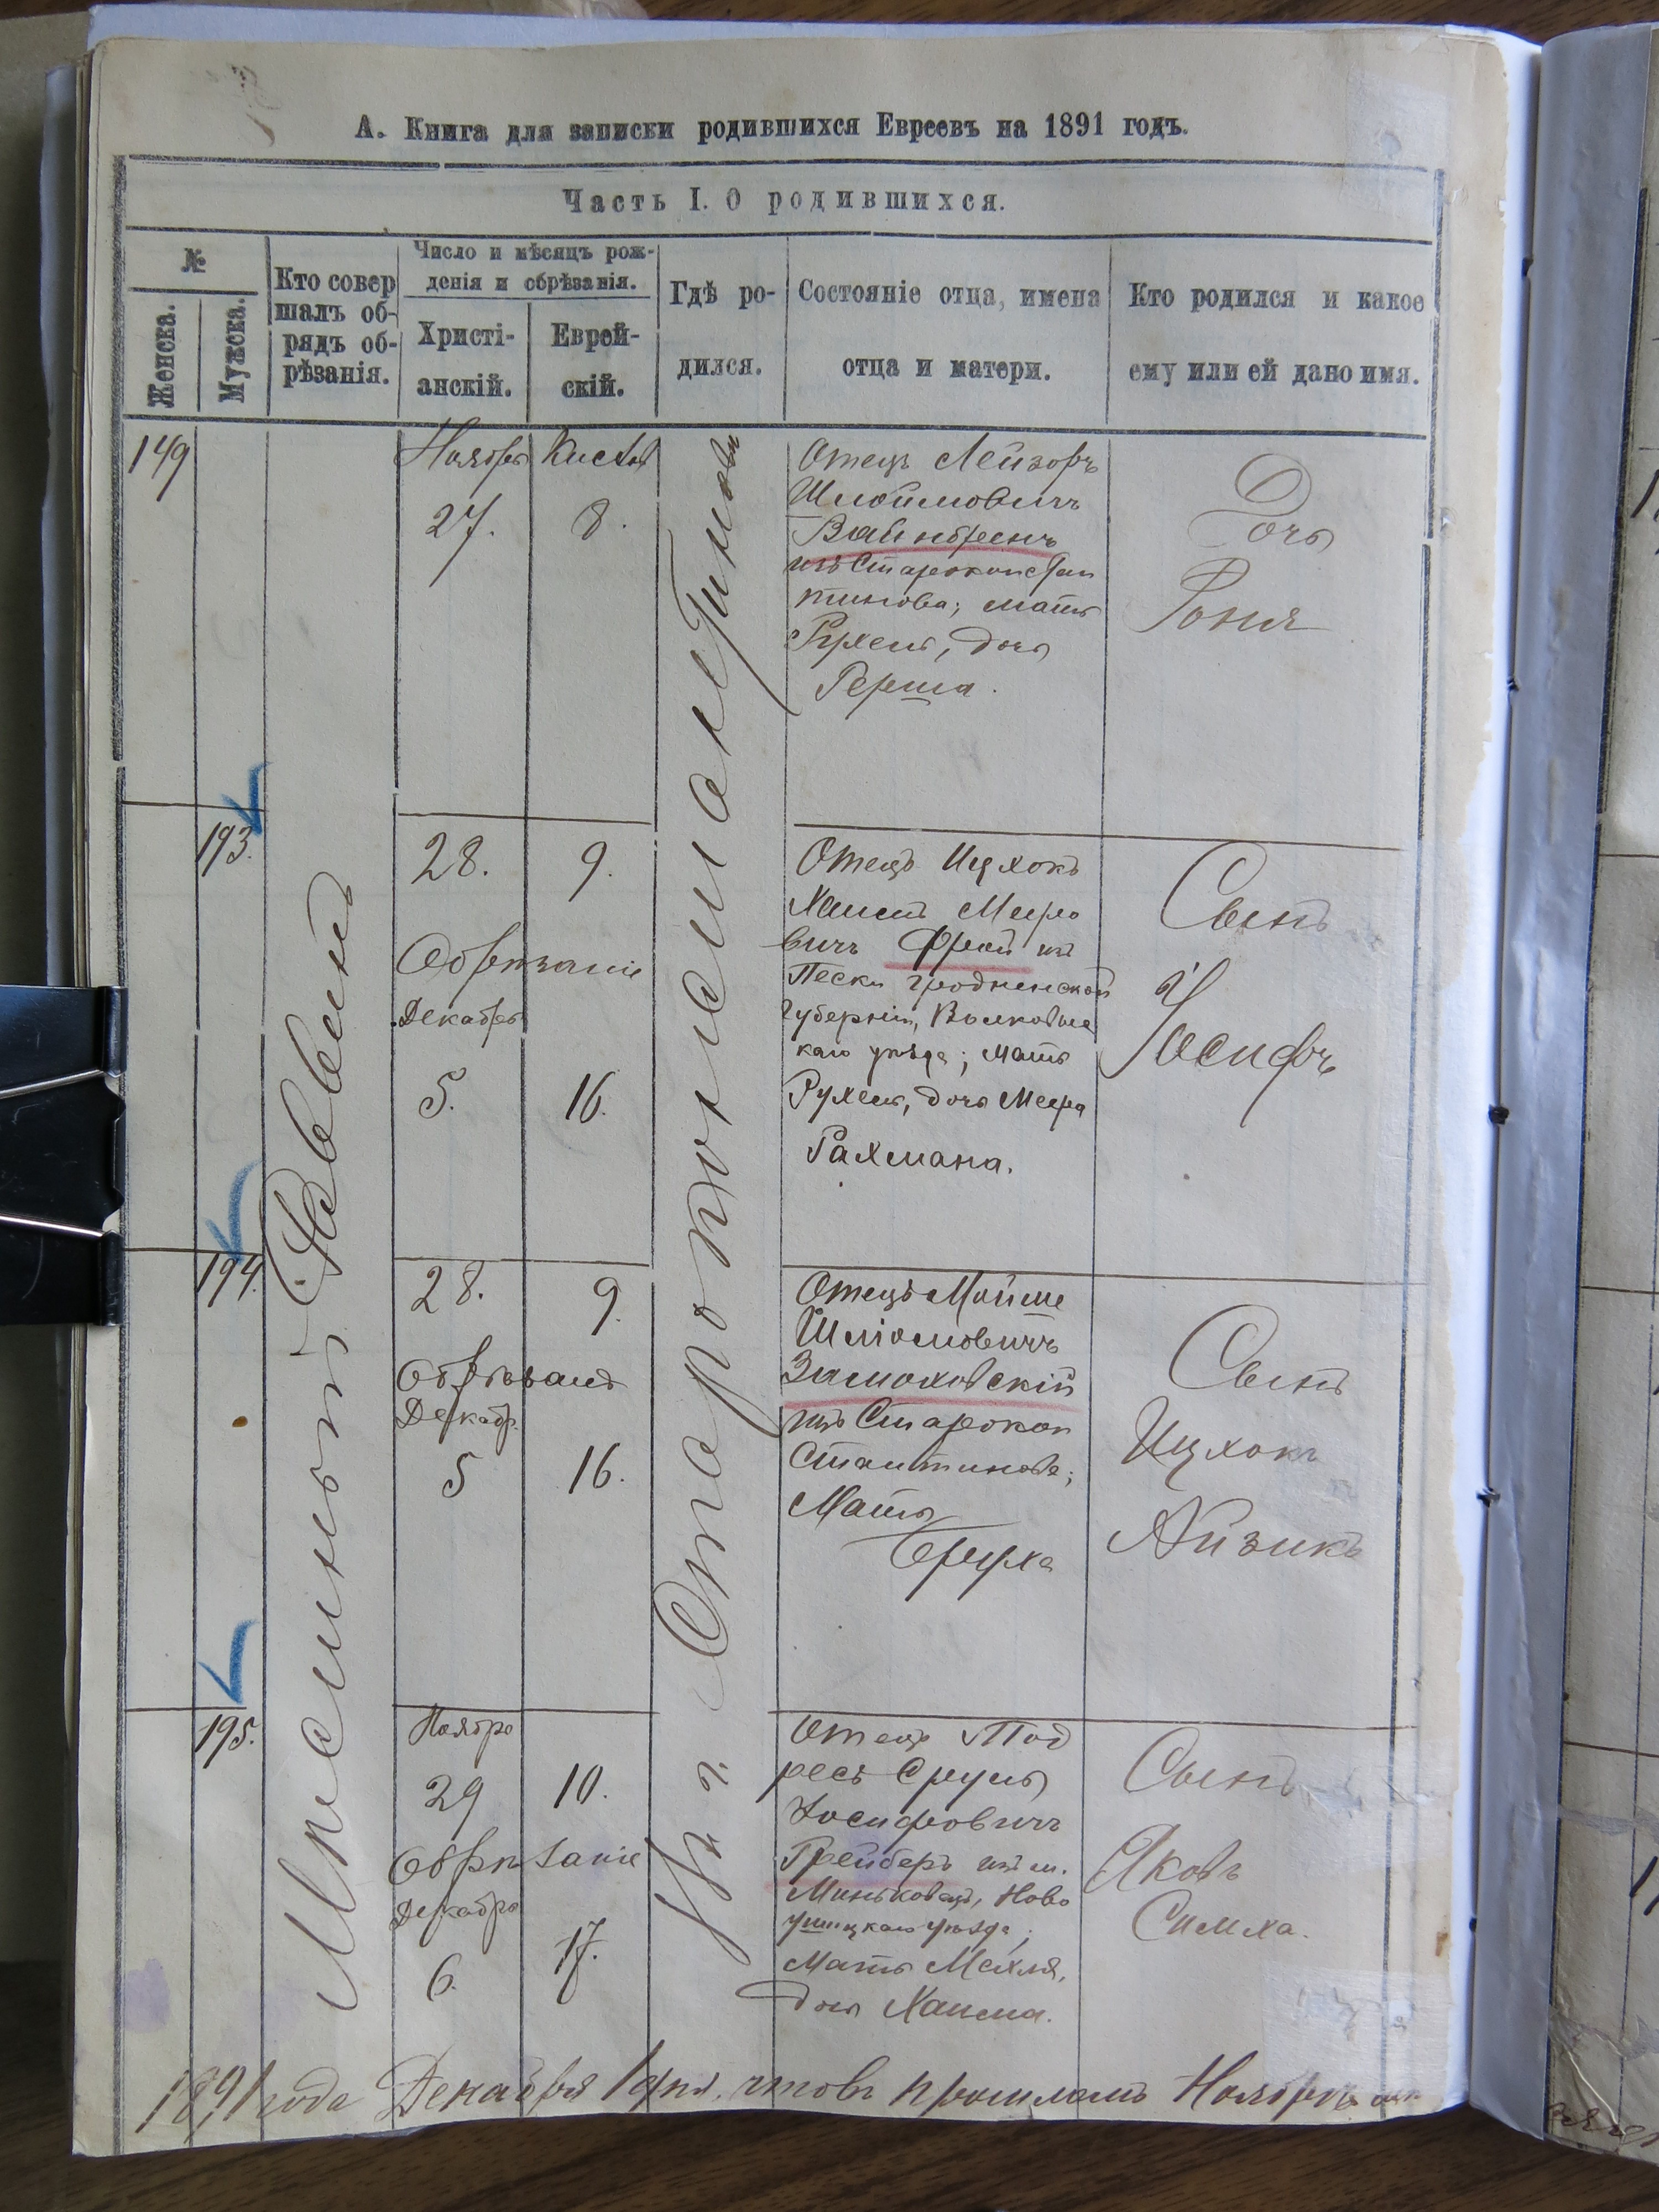 А. Книга для записки родившихся Евреевъ на 1891 годъ.
Часть I. О родившихся.
№
Женска.
Мужска.
Кто совер
шалъ об-
рядъ об-
рѣзанія.
Число и мѣсяцъ рож-
денія и обрѣзанія.
Христі-
анскій.
Еврей-
скій.
Гдѣ ро-
дился.
Состояніе отца, имена
отца и матери.
Кто родился и какое
ему или ей дано имя.
Мѣстный Раввинъ
Въ г. Староконстантиновѣ
149
Ноябрь
27.
Кислев
8.
Отецъ Лейзоръ
Шлоймовичъ
Вайнбренъ
изъ Староконстан
тинова; мать
Рухель, дочь
Герша.
Дочь
Роня
193.
28.
9.
Обрѣзаніе
Декабрь
5.
16.
Отецъ Ицхокъ
Хаимъ Меиро
вичъ Фрей изъ
Пески Гродненской
Губерніи, Волковыс
каго уѣзда; Мать
Рухель, дочь Меера
Рахмана.
Сынъ
Іосифъ
194.
28.
9.
Обрѣзаніе
Декабр.
5
16.
Отецъ Мойше
Шліомовичъ
Замоховскій
изъ Старокон
стантинова;
Мать
Бруха
Сынъ
Ицхокъ
Айзикъ
195.
Ноябрь
29
10.
Обрѣзаніе
Декабрь
6.
17.
Отецъ
Сруль
Іосифовичъ
Грейберъ изъ м.
Миньковецъ, Ново
ушицкаго уѣзда;
Мать Мехля,
дочь Хаима.
Сынъ
Яковъ
Симха.
1891 года Декабря 1 дня, что въ прошломъ Ноябрѣ